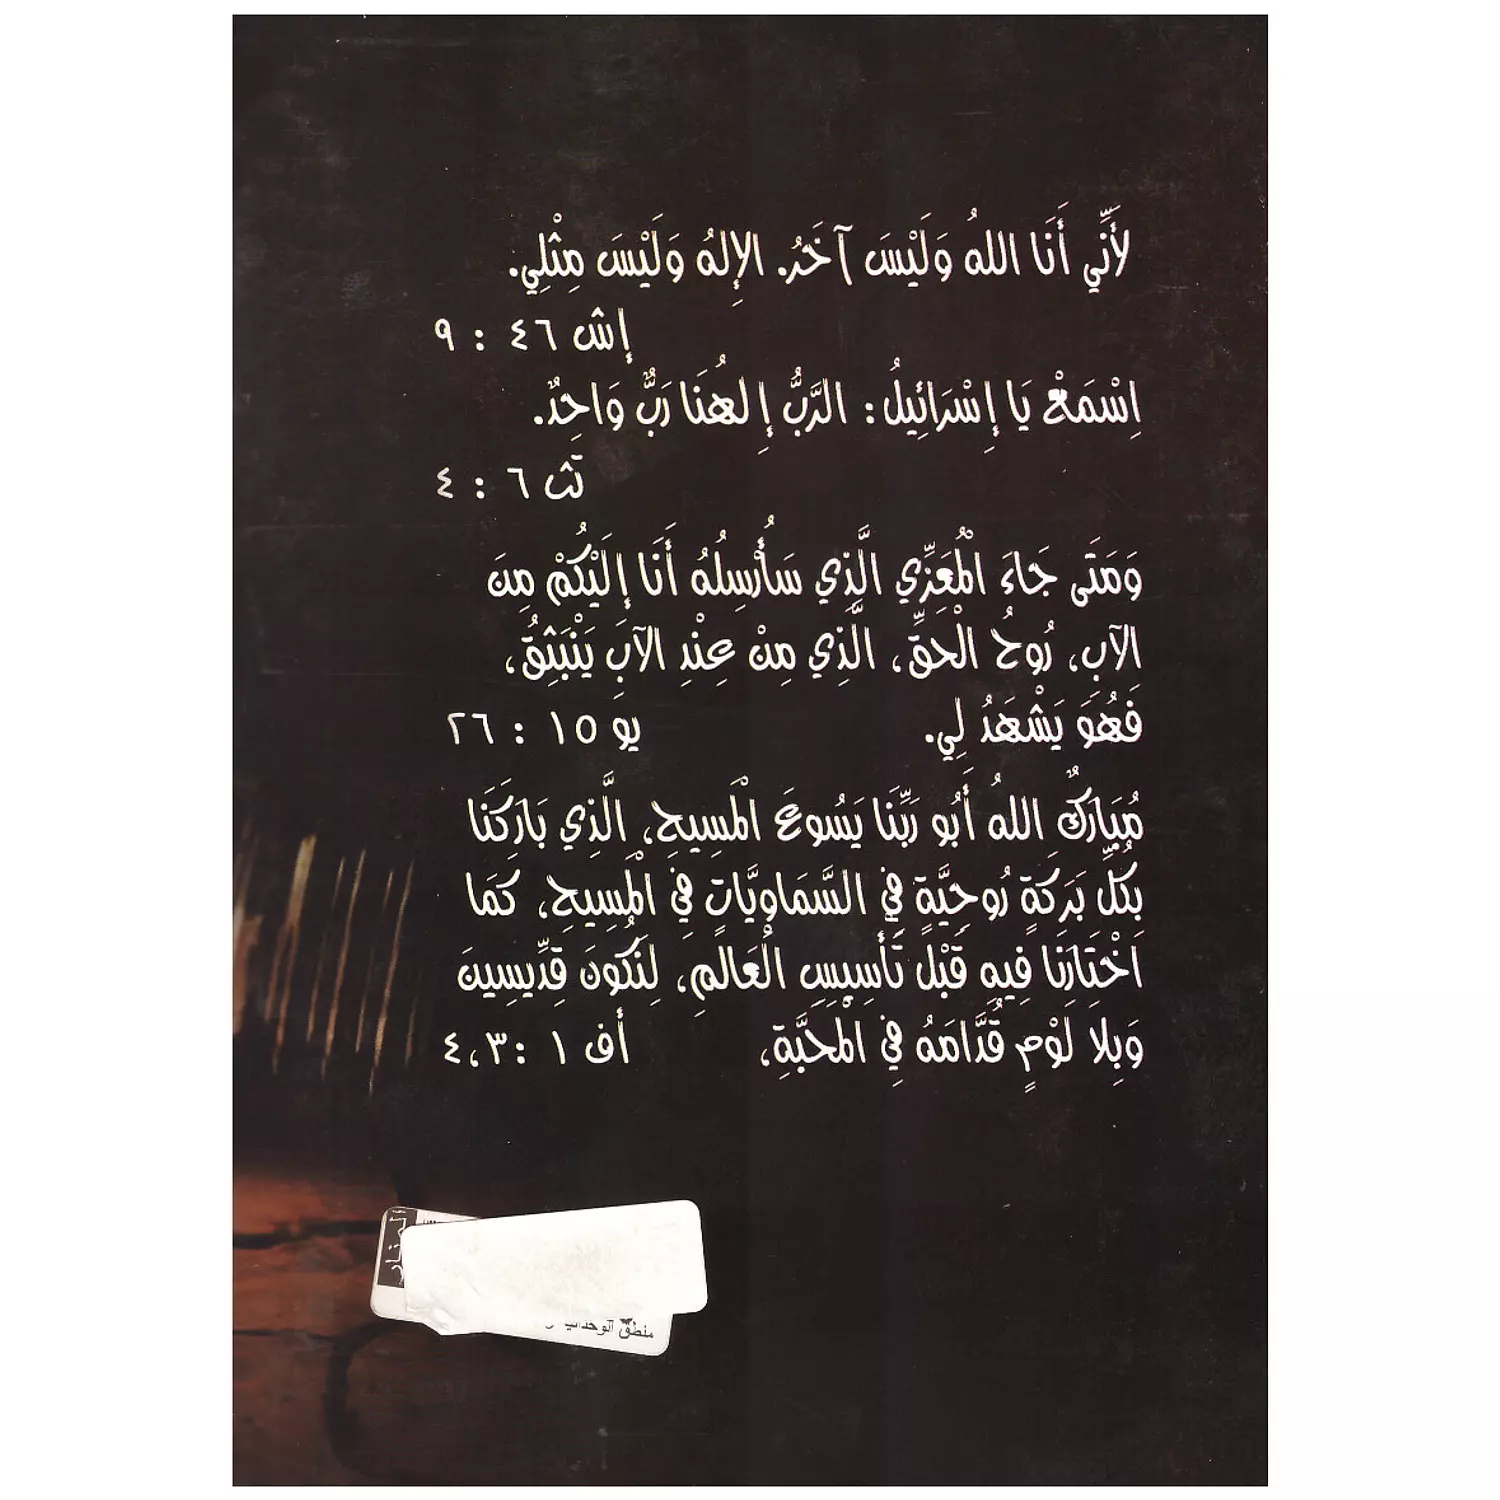 لأَنِّي أَنَا اللهُ وَلَيْسَ آخَرُ. الإِلهُ وَلَيْسَ مِثْلِي.
إش ٤٦ : ٩
اِسْمَعْ يَا إِسْرَائِيلُ: الرَّبُّ إِلهُنَا رَبٌّ وَاحِدٌ.
تث ٦ : ٤
وَمَتَى جَاءَ الْمُعَزِّي الَّذِي سَأُرْسِلُهُ أَنَا إِلَيْكُمْ مِنَ
الآبِ، رُوحُ الْحَقِّ، الَّذِي مِنْ عِنْدِ الآبِ يَنْبَثِقُ،
فَهُوَ يَشْهَدُ لِي. يو ١٥ : ٢٦
مُبَارَكٌ اللهُ أَبُو رَبِّنَا يَسُوعَ الْمَسِيحِ، الَّذِي بَارَكَنَا
بِكُلِّ بَرَكَةٍ رُوحِيَّةٍ فِي السَّمَاوِيَّاتِ فِي الْمَسِيحِ، كَمَا
اخْتَارَنَا فِيهِ قَبْلَ تَأْسِيسِ الْعَالَمِ، لِنَكُونَ قِدِّيسِينَ
وَبِلاَ لَوْمٍ قُدَّامَهُ فِي الْمَحَبَّةِ، أف ١ :٣، ٤
المنار
منطق الوحدانية